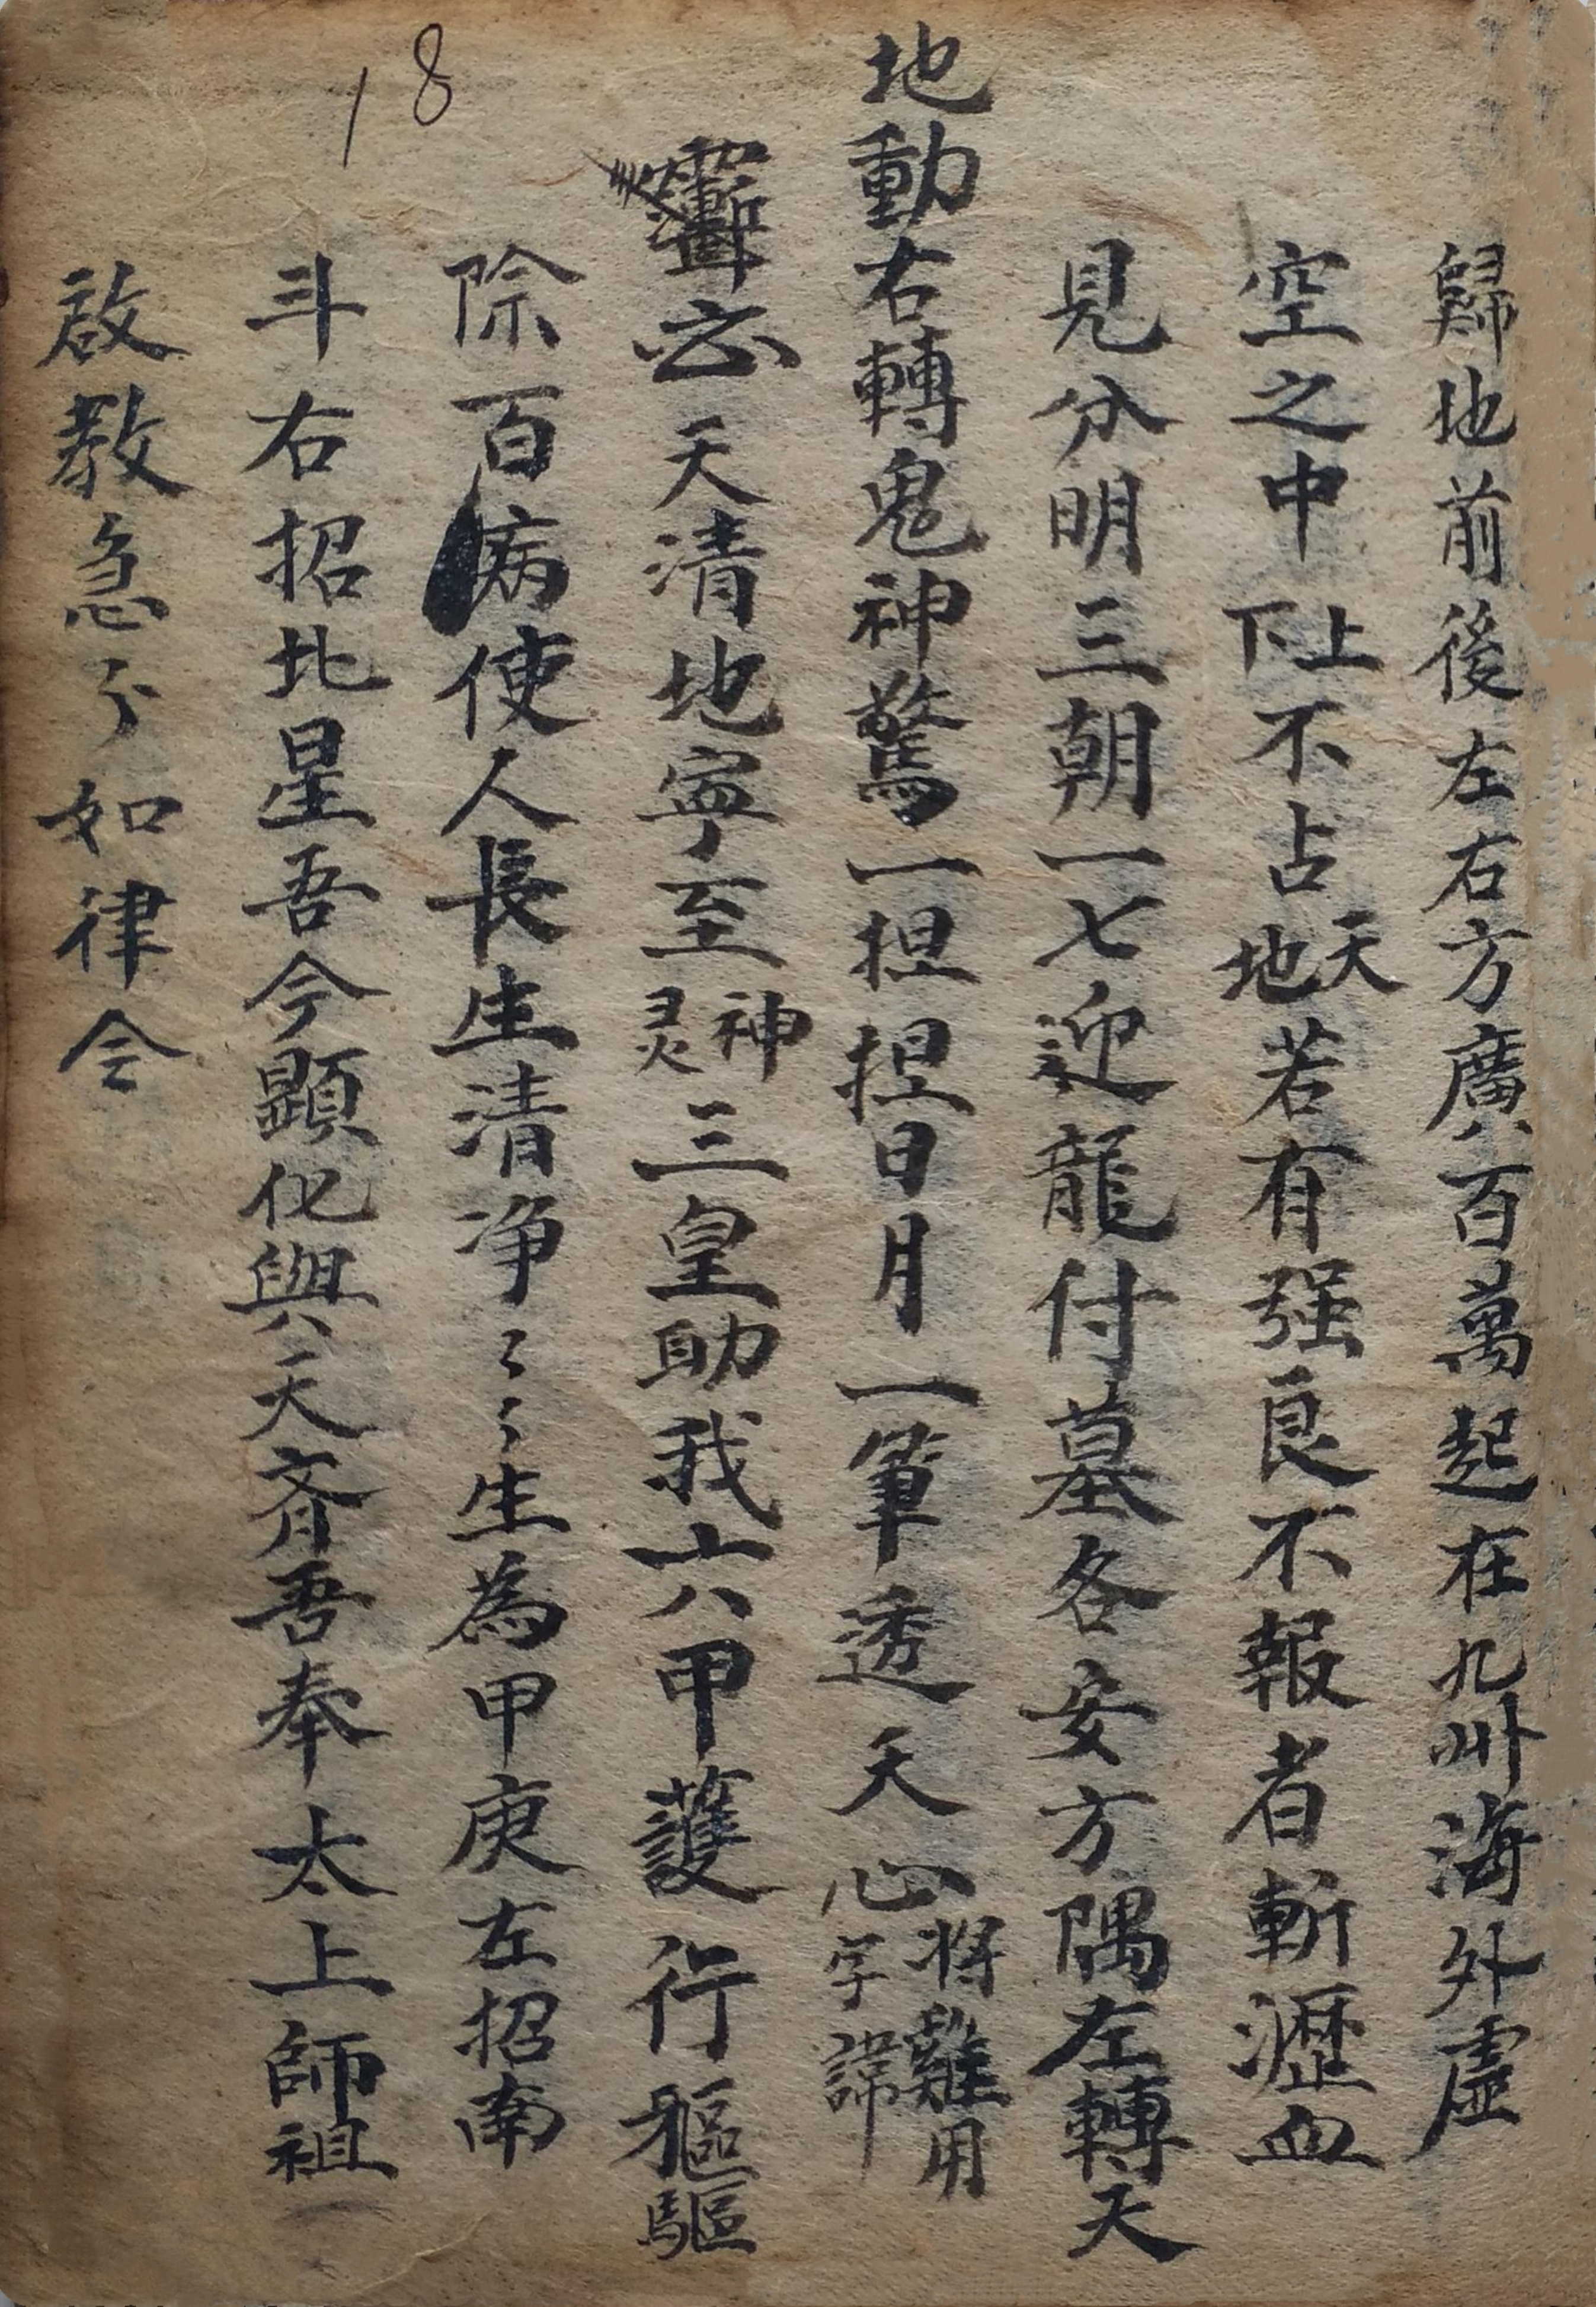 18
歸地前後左右方廣八百萬起在九州海外虛
空之中上下不占天地若有强良不報者斬瀝血
見分明三朝一七迎龍付墓各安方隅左轉天
地動右轉鬼神驚一担担日月一筆透天心将雞用字諱
天清地寧至神灵三皇助我六甲護行軀驅
除百病使人長生清净〻〻生為甲庚左招南
斗右招北星吾今顕化與天齊吾奉太上師祖
啟教急〻如律令